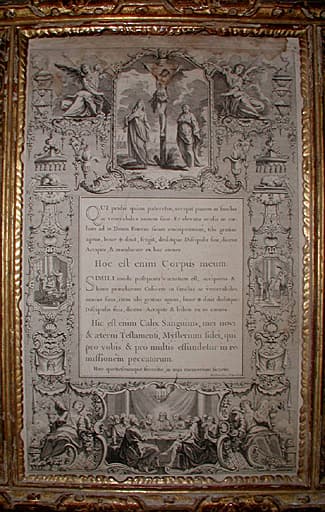 QUI pridie quàm pateretur, accepit panem in sanctas
ac venerabiles manus suas: Et elevatis oculis in cœ-
lum ad te Deum Patrem suum omnipotentem, tibi gratias
agens, bene✠dixit, fregit, deditque Discipulis suis, dicens:
Accipite, & manducate ex hoc omnes:
Hoc est enim Corpus meum.
SIMILI modo postquam cœnatum est, accipiens &
hunc præclarum Calicem in sanctas ac venerabiles
manus suas, item tibi gratias agens, bene✠dixit deditque
Discipulis suis, dicens: Accipite & bibite ex eo omnes.
Hic est enim Calix Sanguinis mei novi
& æterni Testamenti, Mysterium fidei, qui
pro vobis & pro multis effundetur in re-
missionem peccatorum.
Hæc quotiescumque feceritis, in mei memoriam facietis.